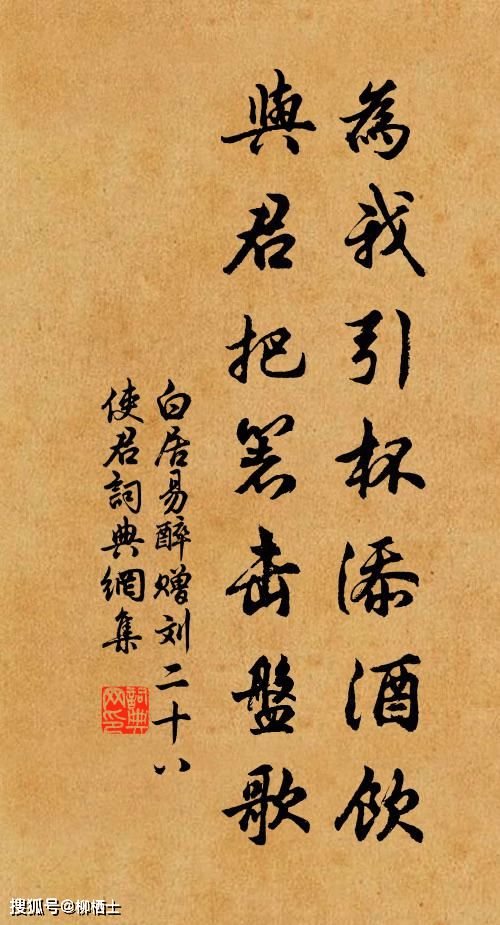 為我引杯添酒飲
與君把箸击盤歌
白居易醉赠刘二十八
使君詞典網集
詞典网印
搜狐号@柳栖士